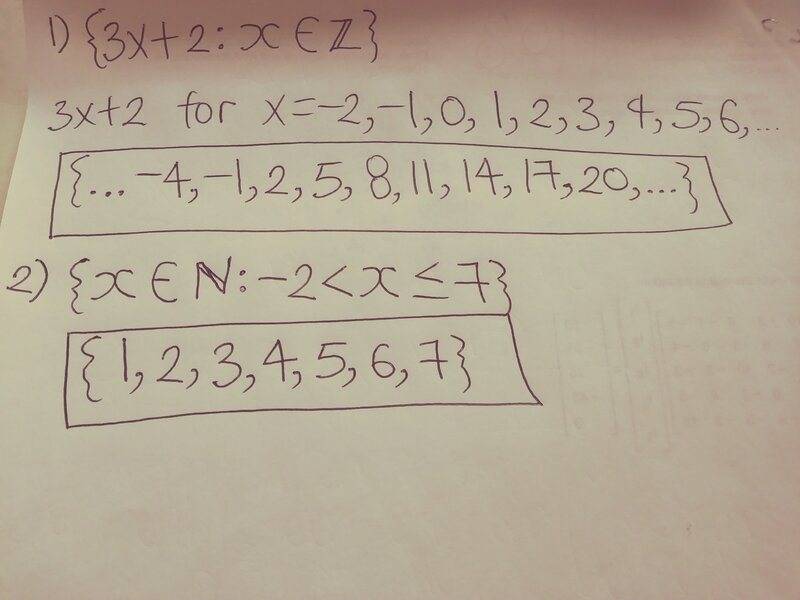 1) {3x+2: x∈ℤ}
3x+2 for x=-2,-1,0,1,2,3,4,5,6,...
{...-4,-1,2,5,8,11,14,17,20,...}
2) {x∈ℕ:-2<x≤7}
{1,2,3,4,5,6,7}